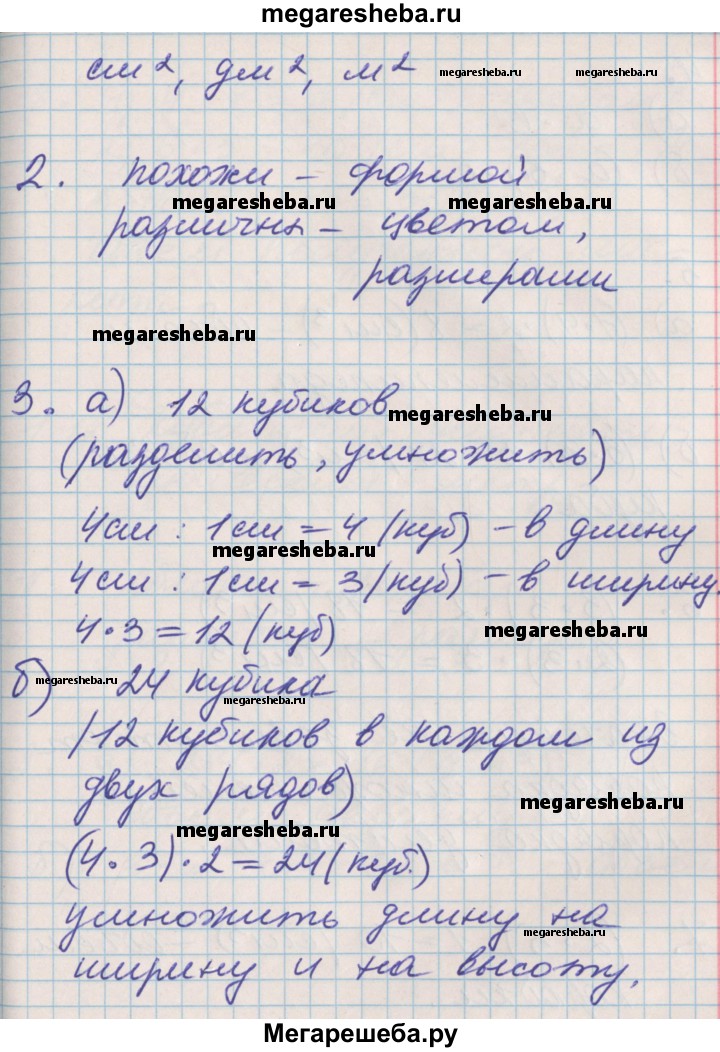 megaresheba.ru
см², дм², м²
megaresheba.ru megaresheba.ru
2. похожи – формой
megaresheba.ru megaresheba.ru
различны – цветом,
размерами
megaresheba.ru
3. а) 12 кубиков
megaresheba.ru
(разделить, умножить)
4см : 1см = 4 (куб) – в длину
megaresheba.ru
4см : 1см = 3 (куб) – в ширину.
4·3=12 (куб)
megaresheba.ru
б) 24 кубика
megaresheba.ru
megaresheba.ru
(12 кубиков в каждом из
двух рядов)
megaresheba.ru
megaresheba.ru
(4·3)·2=24 (куб.)
умножить длину на
megaresheba.ru
ширину и на высоту.
Мегарешеба.ру